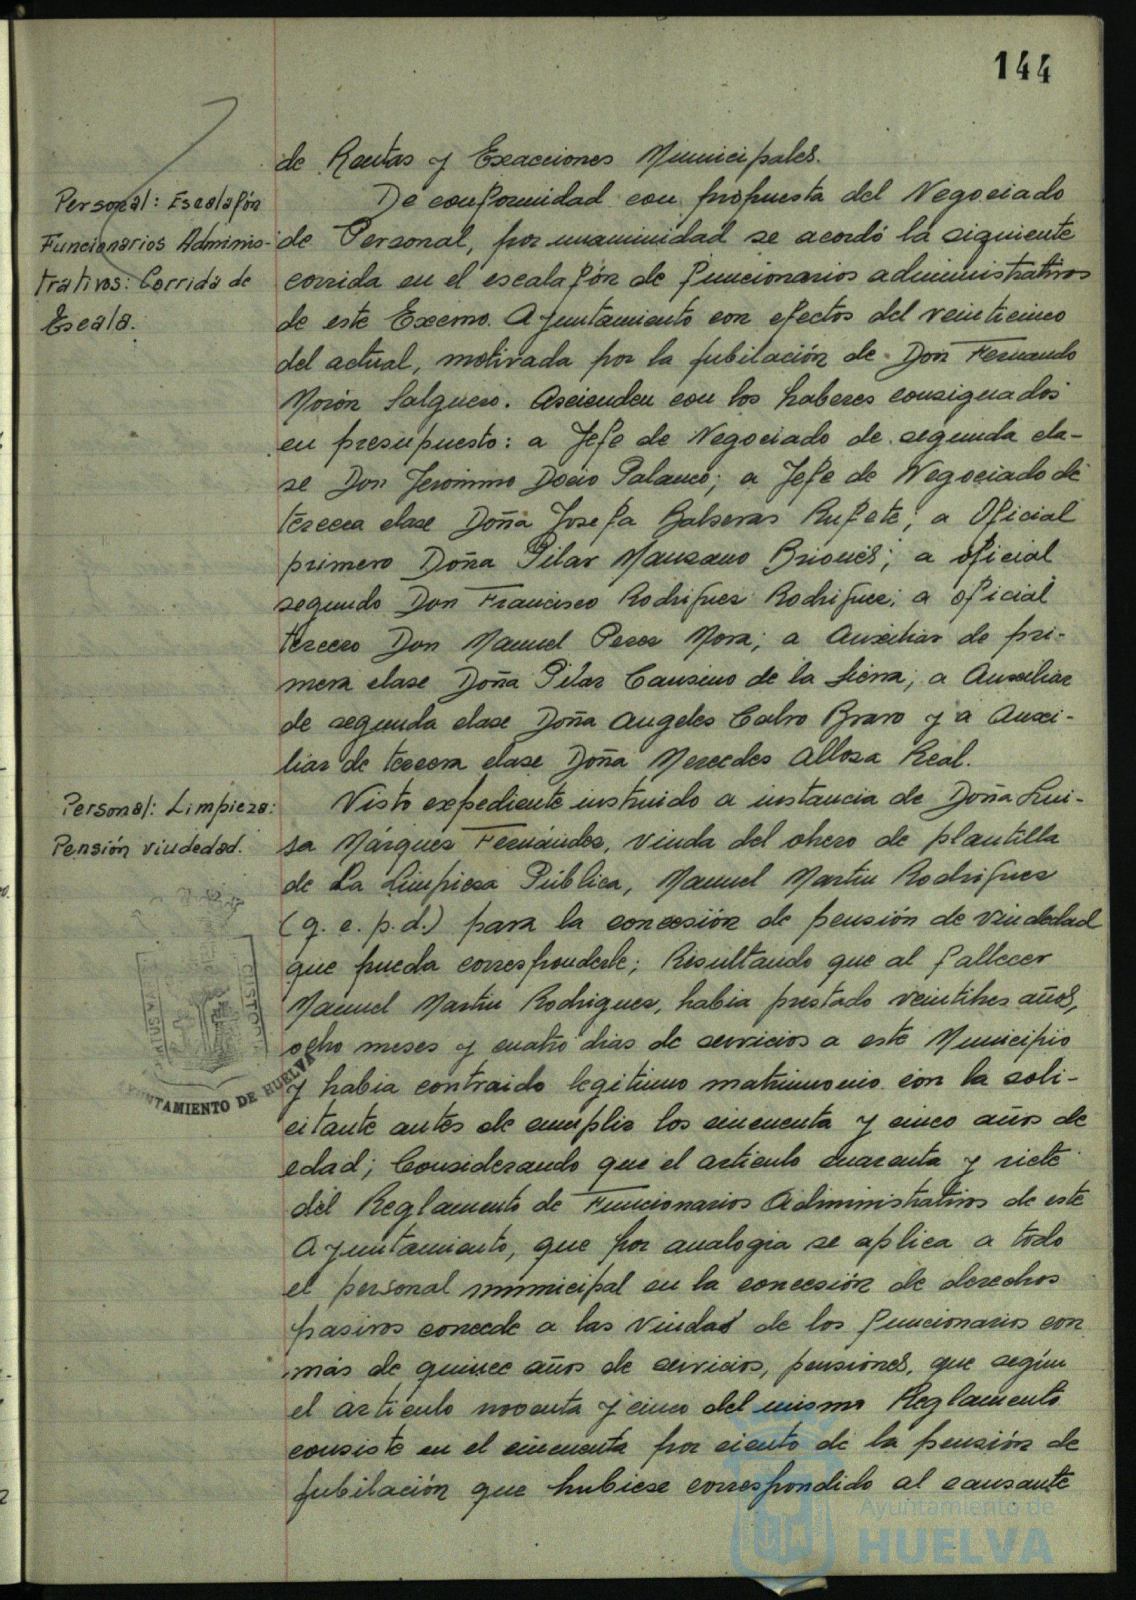 144
de Rentas y Exacciones Municipales.
Personal: Escalafón
Funcionarios Adminis-
trativos: Corrida de
Escala.
De conformidad con propuesta del Negociado
de Personal, por unanimidad se acordó la siguiente
corrida en el escalafón de funcionarios administrativos
de este Excmo. Ayuntamiento con efectos del veinticinco
del actual, motivada por la jubilación de Don Fernando
Morón Salguero. Ascienden con los haberes consignados
en presupuesto: a Jefe de Negociado de segunda cla-
se Don Jeronimo Docio Palanco; a Jefe de Negociado de
tercera clase Doña Josefa Balseras Rufete; a Oficial
primero Doña Pilar Manzano Briones; a oficial
segundo Don Francisco Rodriguez Rodriguez; a oficial
tercero Don Manuel Perez Mora; a Auxiliar de pri-
mera clase Doña Pilar Cansino de la Sierra; a Auxiliar
de segunda clase Doña Angeles Calvo Bravo y a Auxi-
liar de tercera clase Doña Mercedes Alloza Real.
Personal: Limpieza:
Pensión viudedad.
Visto expediente instruido a instancia de Doña Lui-
sa Márquez Fernández, viuda del obrero de plantilla
de La Limpieza Pública, Manuel Martin Rodriguez
(q. e. p. d.) para la concesión de pensión de viudedad
que pueda corresponderle; Resultando que al fallecer
Manuel Martin Rodriguez, habia prestado veintitres años,
ocho meses y cuatro dias de servicios a este Municipio
y habia contraido legitimo matrimonio con la soli-
citante antes de cumplir los cincuenta y cinco años de
edad; Considerando que el articulo cuarenta y siete
del Reglamento de Funcionarios Administrativos de este
Ayuntamiento, que por analogia se aplica a todo
el personal municipal en la concesión de derechos
pasivos concede a las viudas de los funcionarios con
más de quince años de servicios, pensiones, que según
el articulo noventa y cinco del mismo Reglamento
consiste en el cincuenta por ciento de la pensión de
jubilación que hubiese correspondido al causante
CUSTODIA
UNTAMIENTO DE HUELVA
Ayuntamiento de
HUELVA